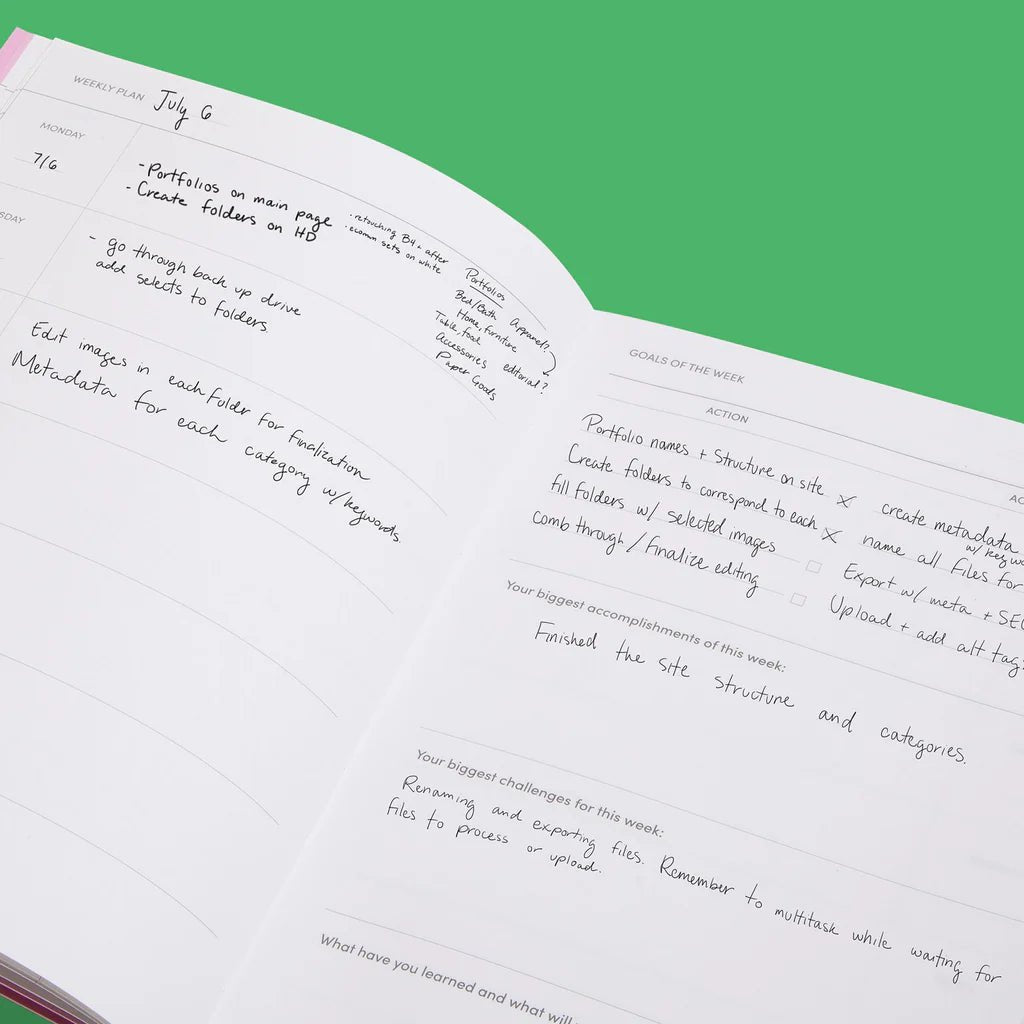 WEEKLY PLAN July 6
MONDAY
7/6
- Portfolios on main page
- Create folders on HD
· retouching B4 + after
· ecomm sets on white
Portfolios
Bed/Bath Apparel?
Home, furniture
Table, food
Accessories editorial?
Paper Goods
SDAY
- go through back up drive
add selects to folders
Edit images in each Foldr for finalization
Metadata for each category w/keywords.
GOALS OF THE WEEK
ACTION
Portfolio names + Structure on site
Create folders to correspond to each
fill folders w/ selected images
comb through / finalize editing
AC
create metadata
w/ keywo
name all files for
Export w/ meta + SEO
Upload + add alt tags
Your biggest accomplishments of this week:
Finished the site structure and categories.
Your biggest challenges for this week:
Renaming and exporting files. Remember to multitask while waiting for
files to process or upload.
What have you learned and what will